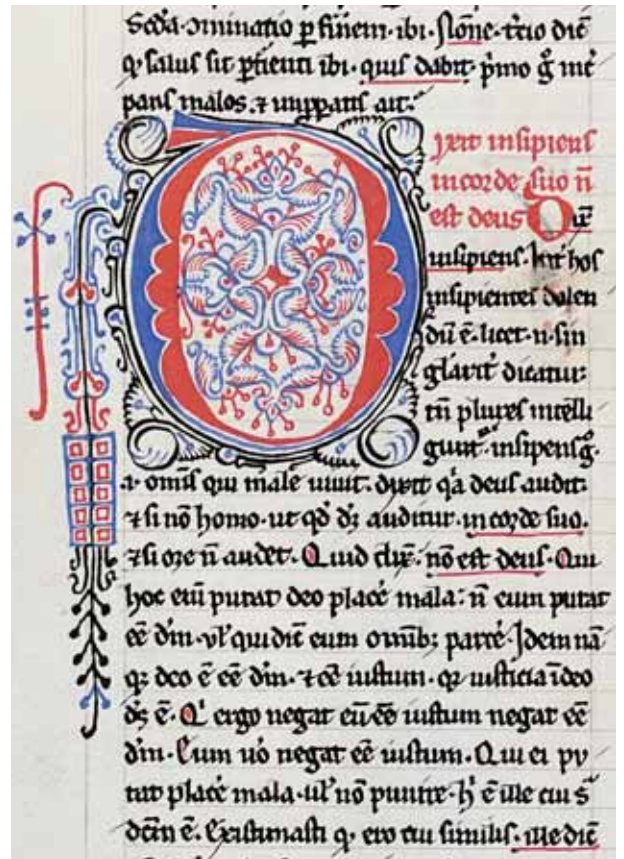 Scd̓a ꝯminatio ꝑ finem· ibi· Nōne· t̓cio diē
qͥ salus sit ꝑficiēti ibi· quis dabit· p̓mo g̊
pans malos· ⁊ uitupans ait·
ixit insipiens
in corde suo n̄
est deus Dix̄
insipiens· hos
insipientes dolen
dū ē· licet· n· sin
glarit̓ dicatur·
tn̄ plures intelli
gunt̓· insipiens g̊·
a· omīs qui male uiuit· dixit qͥa deus audit·
⁊ si nō homo· ut qd̓ dr̄ auditur· in corde suo·
⁊ si ore n̄ audet· Quid dix̄· nō est deus· Qui
hoc eni putat deo placē mala· n̄ eum putat
eē dm̄· ul̓ qui dīc eum omībꝫ parcē· Idem nā
qꝫ deo ē eē dm̄· ⁊ eē iustum· qꝛ iusticia ideo
ds̄ ē· Qͥ ergo negat eū eē iustum negat eē
dm̄· Cum u̓o negat eē iustum· Qui ei pu
tat placē mala· ul̓ nō punire· h̓ ē ille cui
dc̄m ē· Existimasti qͥ ero tui similis· ille dīc